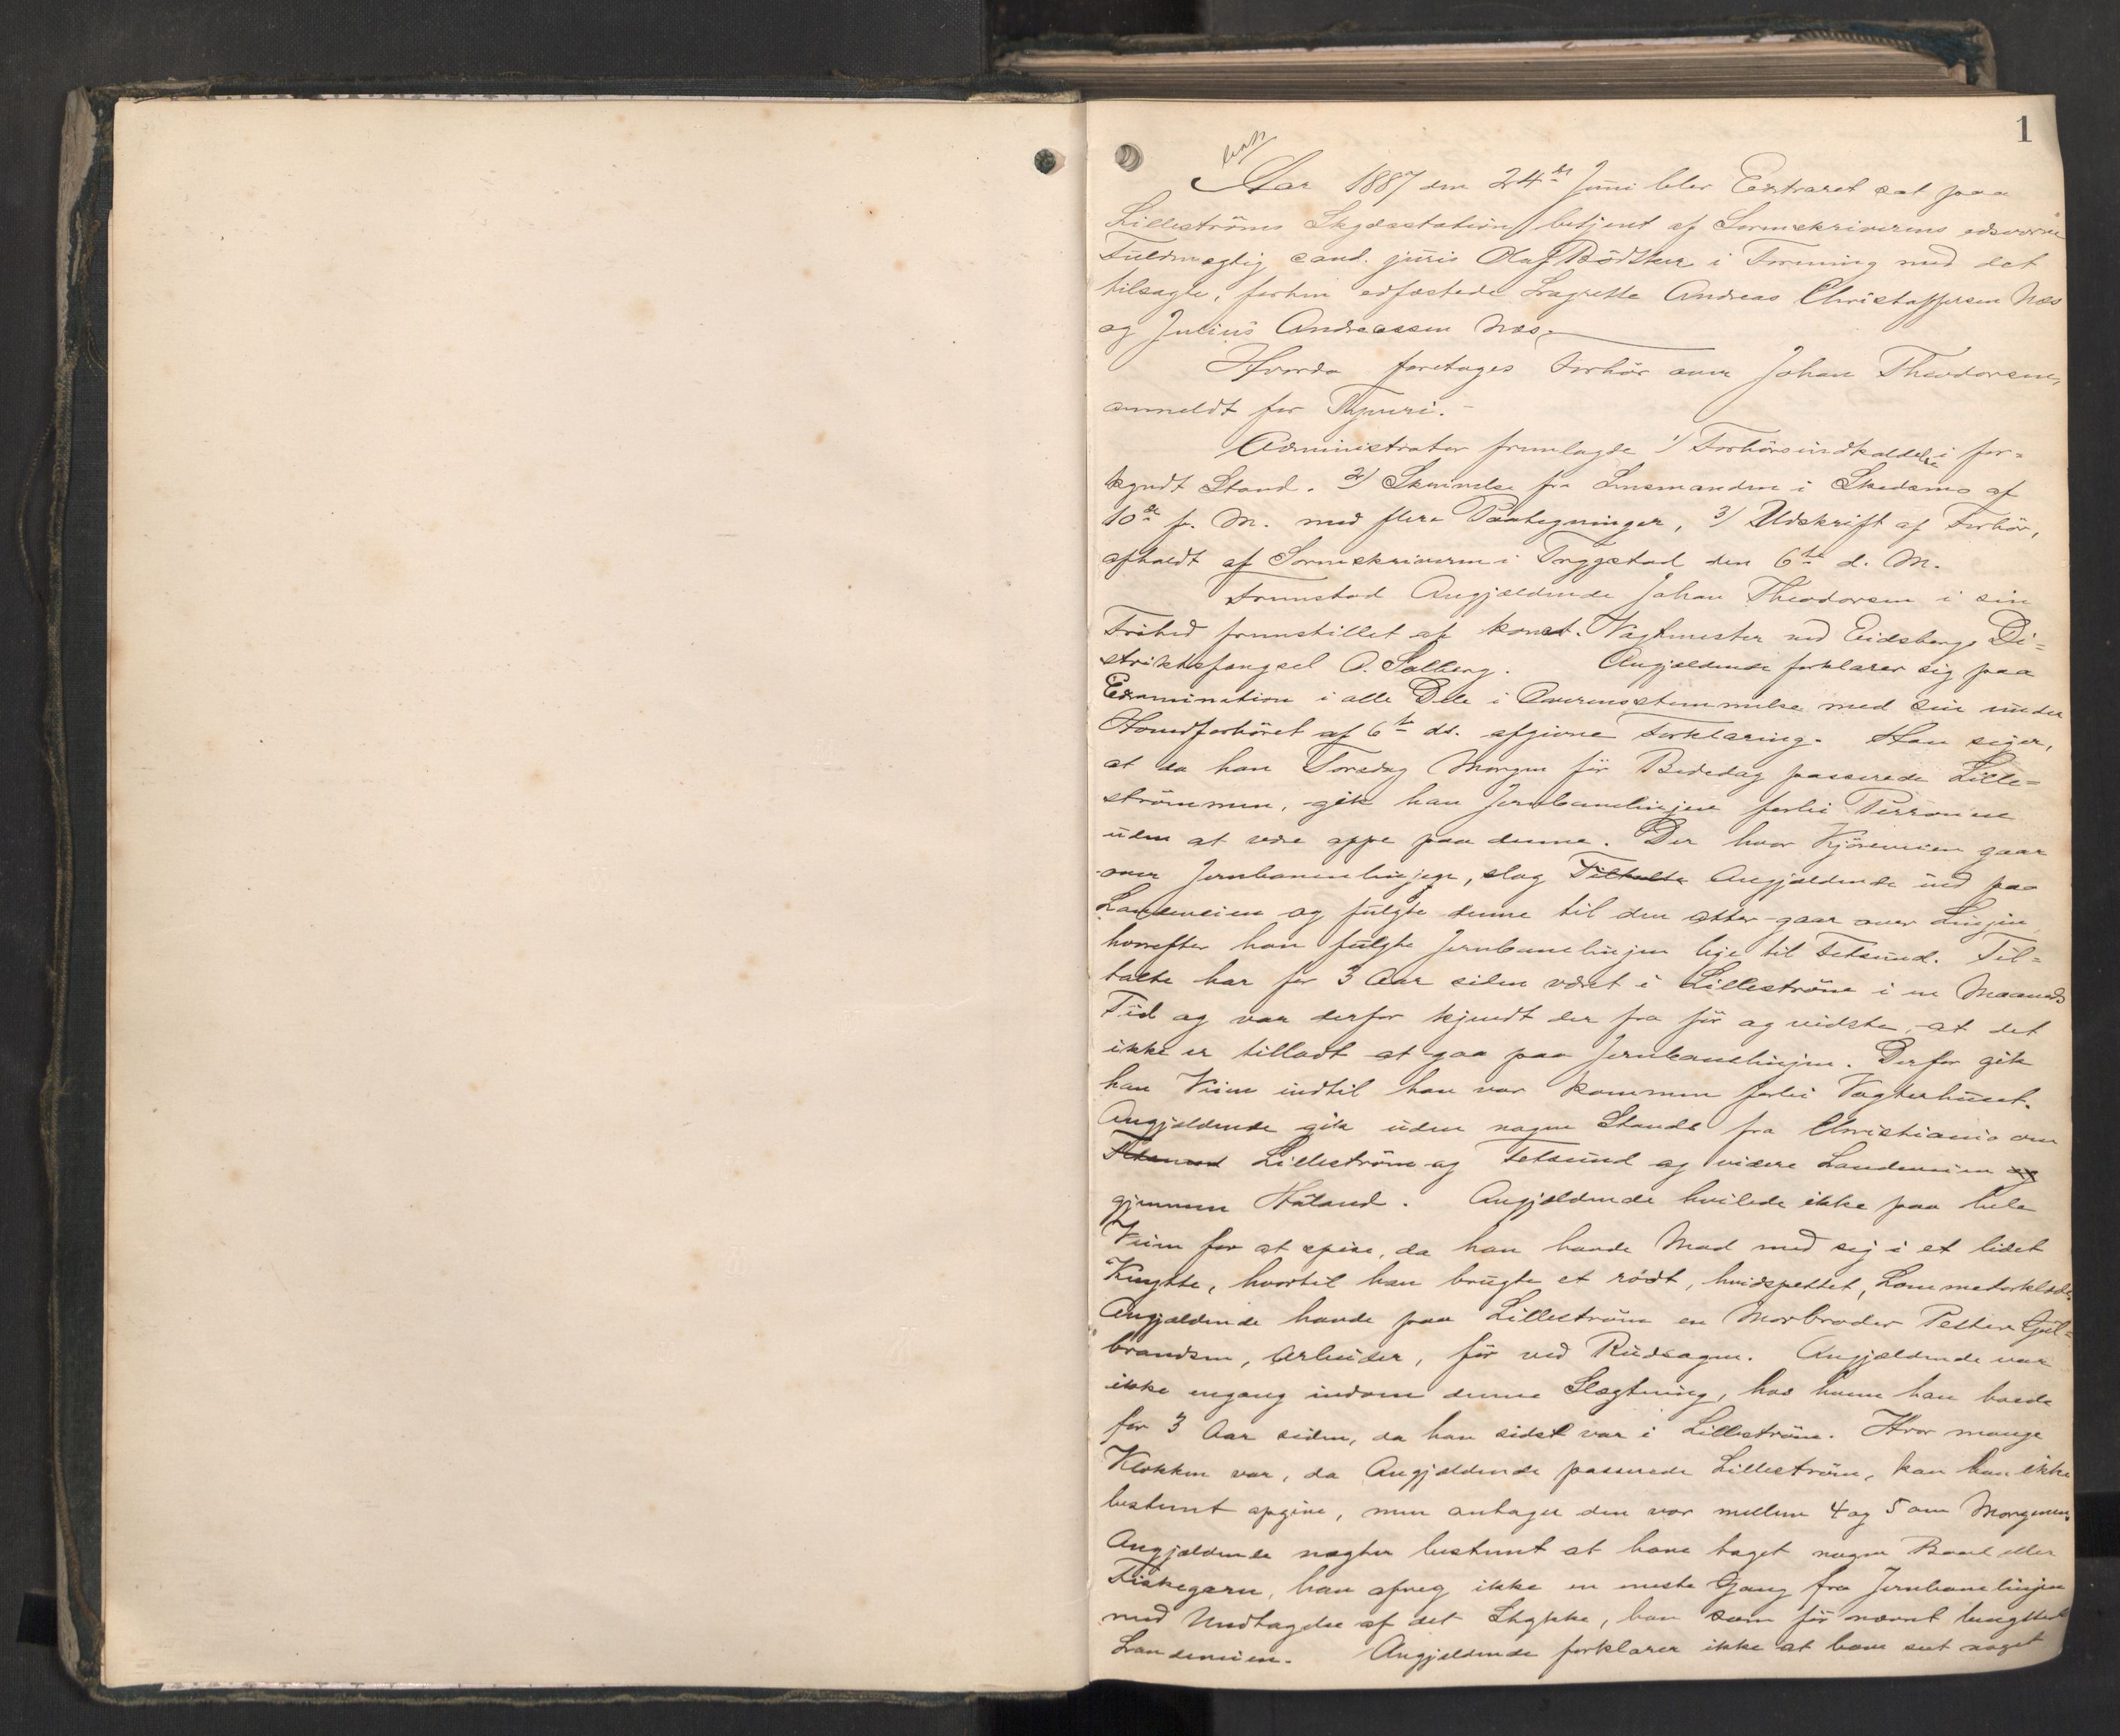 1
Aar 1887 den 24de Juni blev Extraret sat paa
Lilleströms Skydsstation, betjent af Sorenskriverens edsvorne
Fuldmægtig cand. juris Olaf Bödtker i Forening med det
tilsagte, forhen edfæstede Lagrette Andreas Christoffersen Næs
og Julius Andreassen Næs.
Hvorda foretoges Forhör over Johan Theodorsen,
anmeldt for Tyveri.-
Administrator fremlagde 1) Forhörsindkaldelse i for-
kyndt Stand. 2) Skrivelse fra Lensmanden i Skedsmo af
10de f. M. med flere Paategninger, 3) Udskrift af Forhör,
afholdt af Sorenskriveren i Trygstad den 6te d. M.
Fremstod Angjældende Johan Theodorsen i sin
Frihed fremstillet af konst. Vagtmester ved Eidsbergs Di-
striktsfængsel O. Solberg. Angjældende forklarer sig paa
Examination i alle Dele i Overensstemmelse med sin under
Hovedforhöret af 6te ds. afgivne Forklaring. Han siger,
at da han Torsdag Morgen för Bededag passerede Lille-
strömmen, gik han Jernbanelinjen forbi Perronen
uden at være oppe paa denne. Der hvor Kjöreveien gaar
over Jernbanelinjen, slog Tiltalte Angjældende ind paa
Landeveien og fulgte denne til den atter gaar over Linjen,
hvorefter han fulgte Jernbanelinjen lige til Fetsund. Til-
talte har for 3 Aar siden været i Lilleström i en Maaneds
Tid og var derfor kjendt der fra för og vidste, at det
ikke er tilladt at gaa paa Jernbanelinjen. Derfor gik
han Veien indtil han var kommen forbi Vogterhuset.
Angjældende gik uden nogen Stands fra Christiania om
Fetsund Lilleström og Fetsund og videre Landeveien og
gjennem Höland. Angjældende hvilede ikke paa hele
Veien for at spise, da han havde Mad med sig i et lidet
Knytte, hvortil han brugte et rödt, hvidspettet, Lommetörklæde.
Angjældende havde paa Lilleström en Morbroder Petter Gul-
brandsen, Arbeider, för ved Rudsagen. Angjældende var
ikke engang indom denne Slægtning, hos hvem han boede
for 3 Aar siden, da han sidst var i Lilleström. Hvor mange
Klokken var, da Angjældende passerede Lilleström, kan han ikke
bestemt opgive, men antager den var mellem 4 og 5 om Morgenen.
Angjældende nægter bestemt at have taget nogen Baad eller
Fiskegarn, han afveg ikke en eneste Gang fra Jernbanelinjen
med Undtagelse af det Stykke, han som för nævnt benyttede
Landeveien. Angjældende forklarer ikke at have seet noget